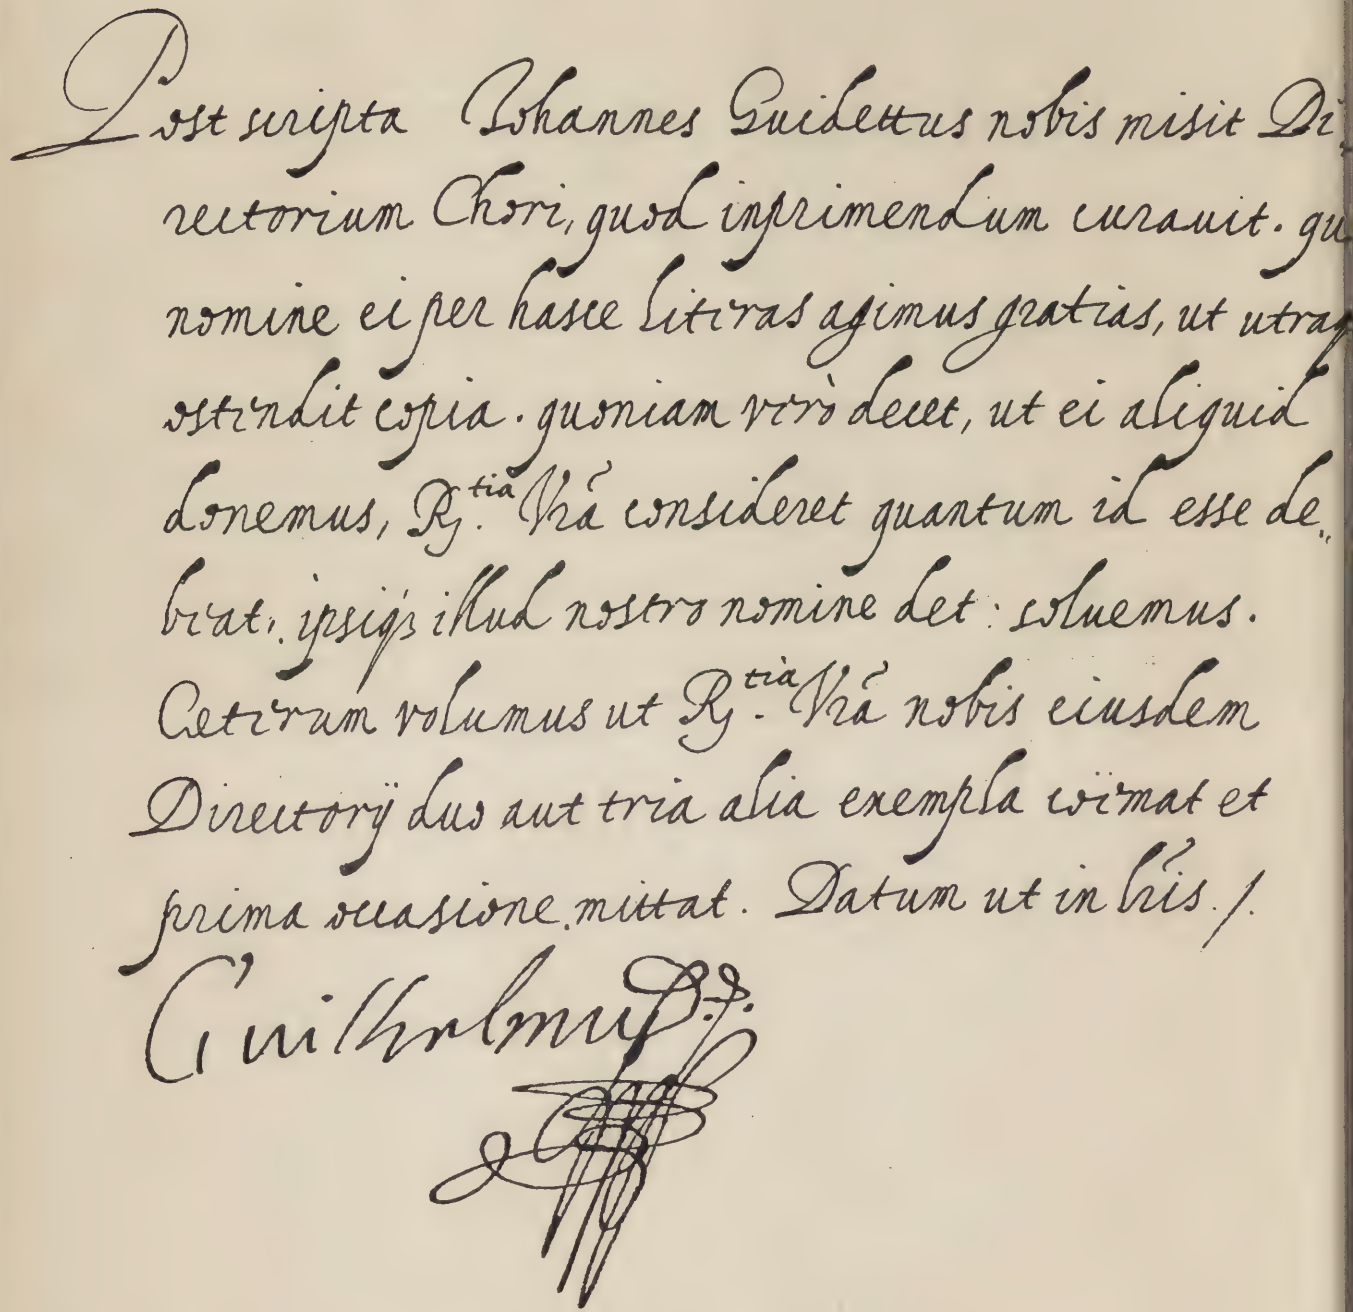 Post scripta Iohannes Guidettus nobis misit Di-
rectorium Chori, quod inprimendum curauit. quo
nomine ei per hasce literas agimus gratias, ut utraq
ostendit copia. quoniam verò decet, ut ei aliquid
donemus, R.tia Vrã consideret quantum id esse de„
beat: ipsiq; illud nostro nomine det: soluemus.
Ceterum volumus ut R.tia Vrã nobis eiusdem
Directorÿ duo aut tria alia exempla coëmat et
prima occasione mittat. Datum ut in lr̃is./.
Guilhelmus